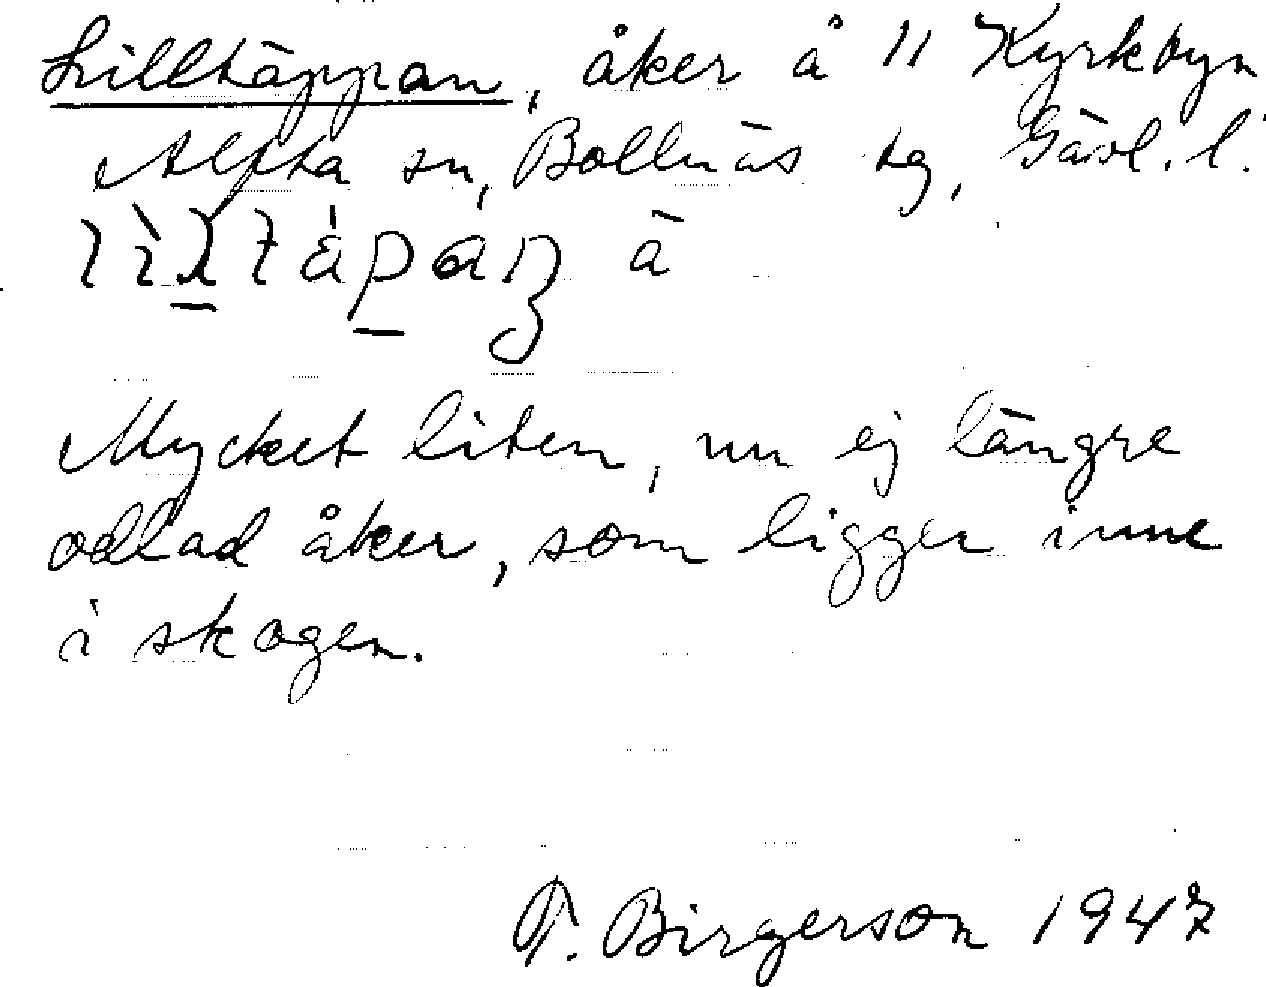 Lilltäppan, åker å 11 Kyrkbyn
Alfta sn, Bollnäs tg, Gävl. l.
Mycket liten, nu ej längre
odlad åker, som ligger inne
i skogen.
Birgerson 1947